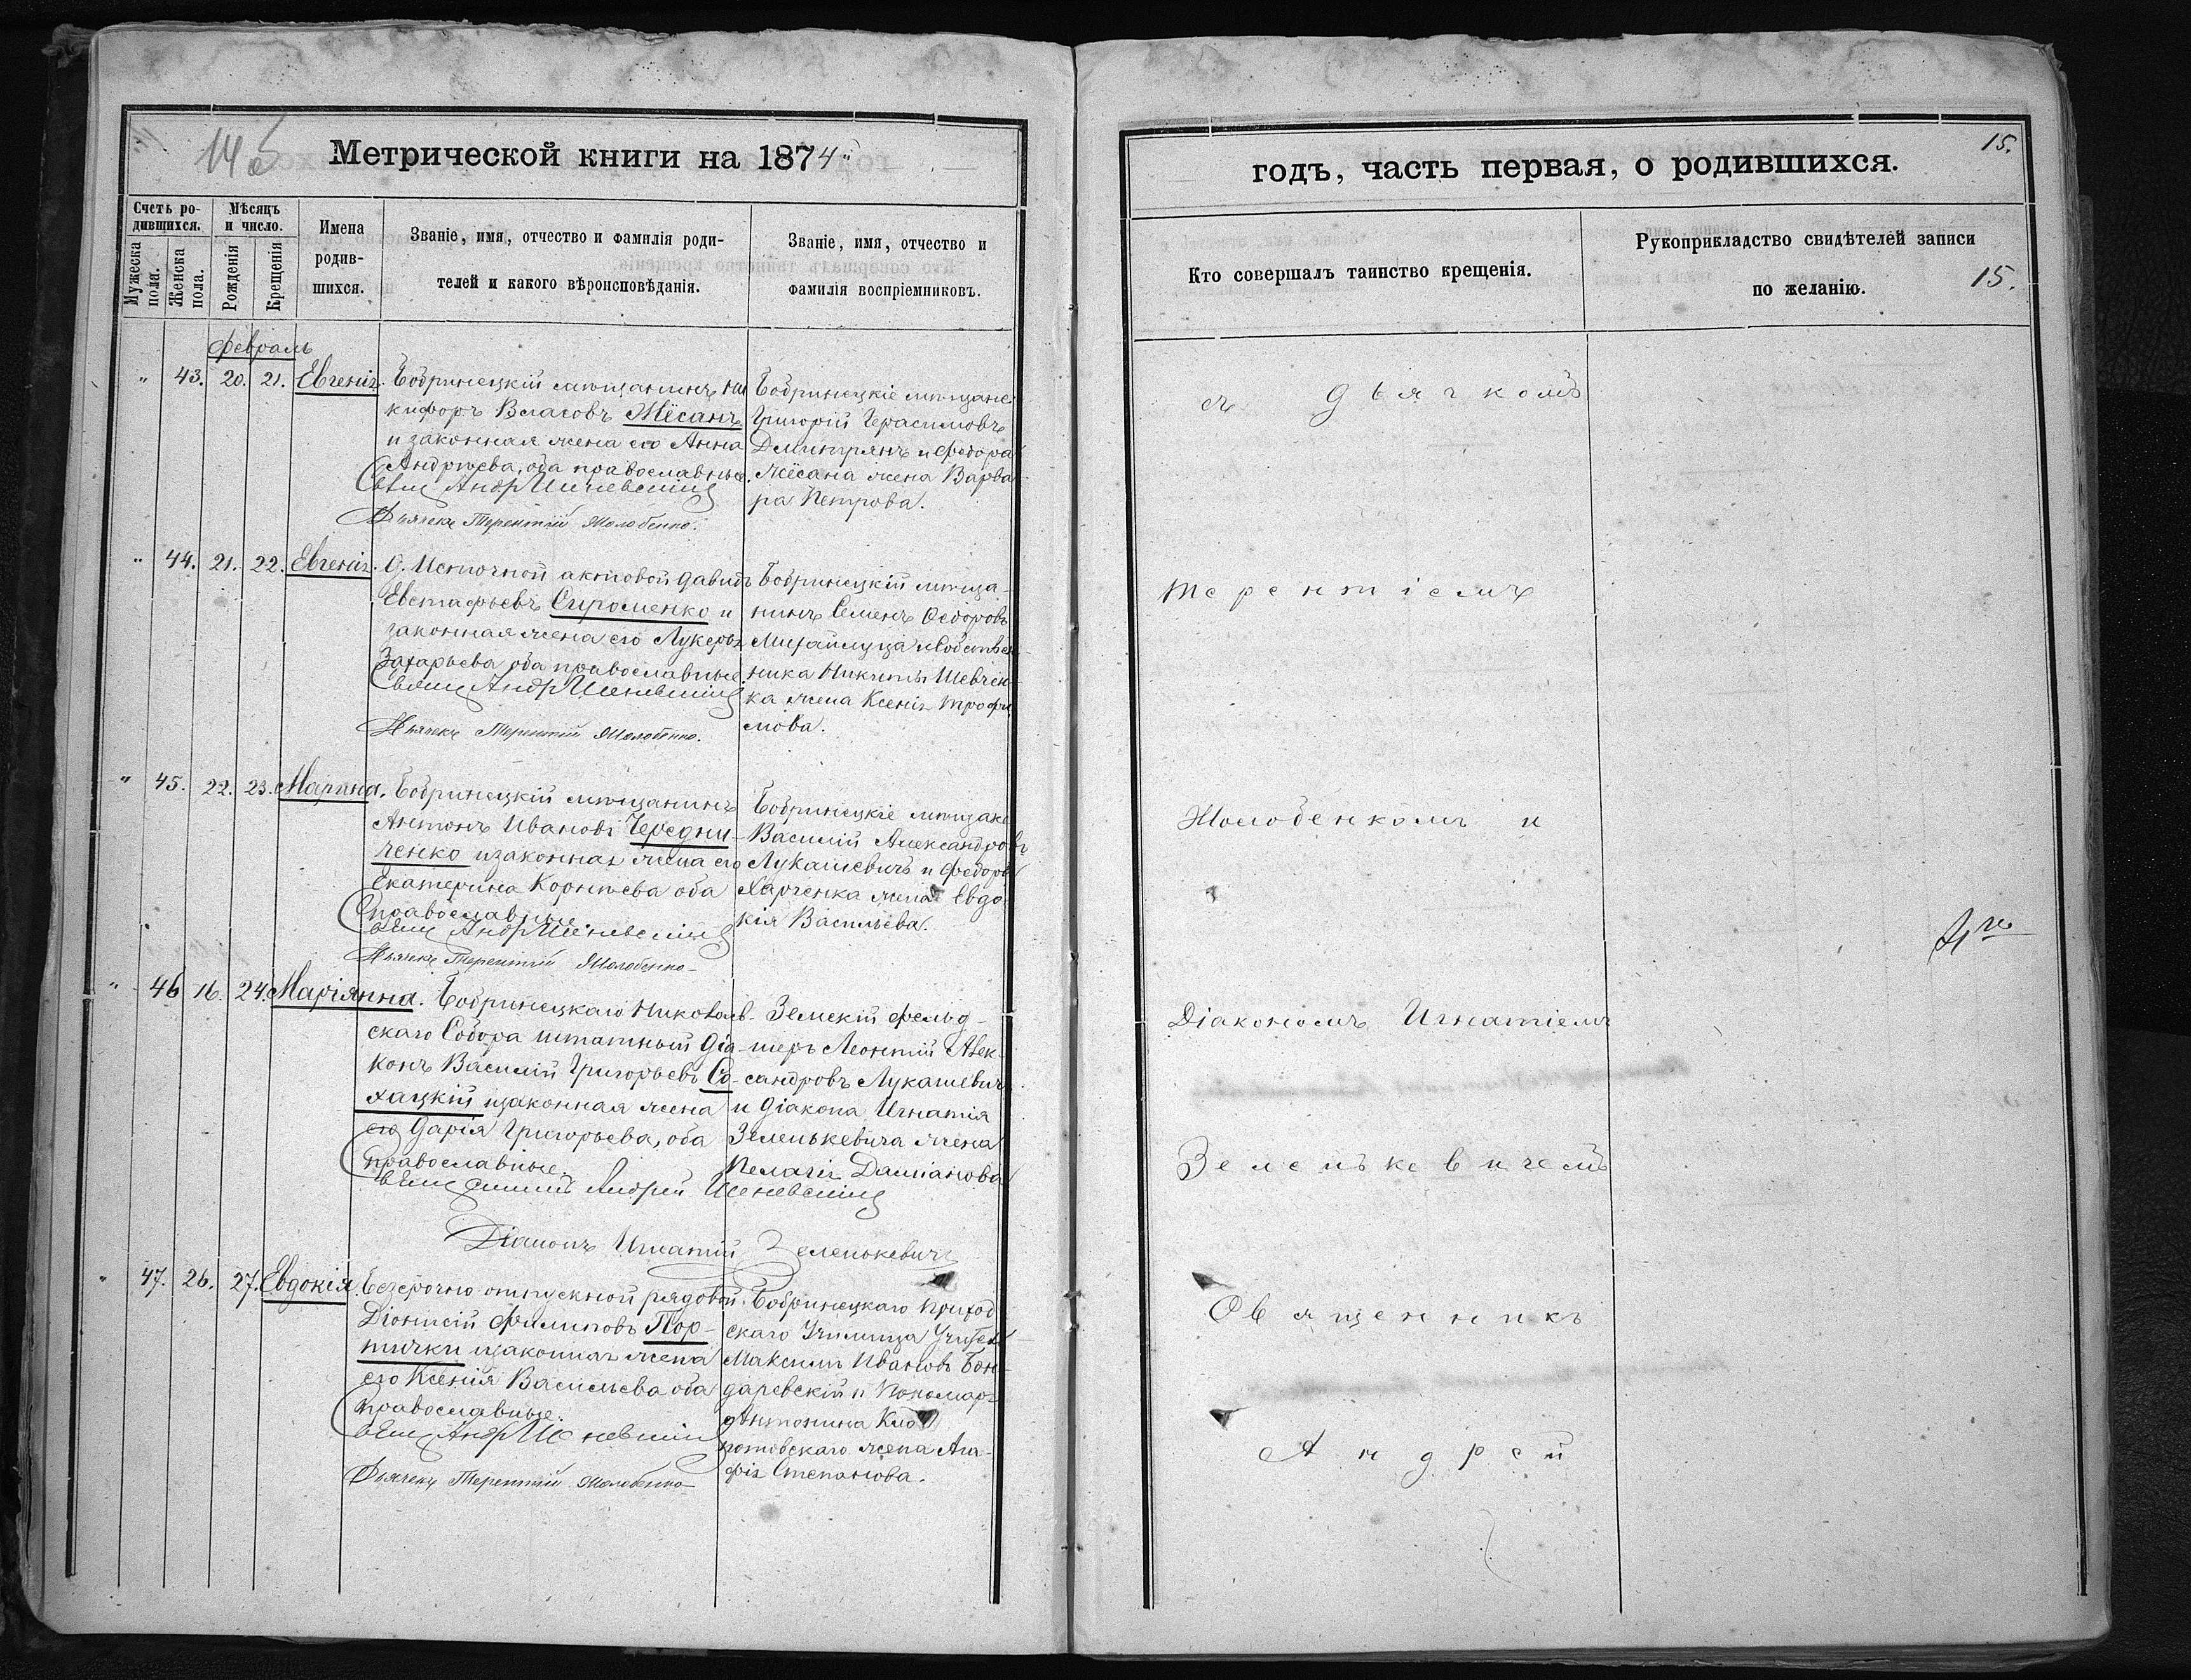 14 об
Метрической книги на 1874
Счетъ ро-
дившихся.
Мужеска
пола.
Женска
пола.
Мѣсяцъ
и число.
Рожденія
Крещенія
Имена
родив-
шихся.
Званіе, имя, отчество и фамилія роди-
телей и какого вѣроисповѣданія.
Званіе, имя, отчество и
фамилія воспріемниковъ.
февраль
" 43. 20. 21. Евгенія.
Бобринецкій мѣщанинъ Ни
кифоръ Власовъ Мёсанъ
и законная жена его Анна
Андреева, оба православные.
Дьячекъ Терентій Молобенко.
Бобринецкіе мѣщане
Григорій Герасимовъ
Димитрянъ и Федора
Мёсана жена Варва
ра Петрова.
" 44. 21. 22. Евгенія.
актовой Давидъ
Евстафьевъ Сироменко и
законная жена его Лукерья
Захарьева оба православные.
Дьячекъ Терентій Молобенко.
Бобринецкій мѣща-
нинъ Семенъ Федоровъ
Михайлуца
ника Никиты Шевчен-
ка жена Ксенія Трофи
мова.
" 45. 22. 23. Марина.
Бобринецкій мѣщанинъ
Антонъ Ивановъ Чередни-
ченко и законная жена его
Екатерина Корнѣева оба
православные.
Дьячекъ Терентій Молобенко
Бобринецкіе мѣщане
Василій Александровъ
Лукашевичъ и Федора
Харченка жена Евдо
кія Васильева.
" 46 16. 24. Маріянна.
Бобринецкаго Николаев-
скаго Собора штатный Діа-
конъ Василій Григорьевъ Со-
хацкій и законная жена
его Дарія Григорьева, оба
православные.
Діаконъ Игнатій Зеленькевичъ
Земскій фельд-
шеръ Леонтій Алек-
сандровъ Лукашевичъ
и Діакона Игнатія
Зеленькевича жена
Пелагія Даміанова
" 47. 26. 27. Евдокія.
Безсрочно-отпускной рядовой
Діонисій Филиповъ Пор-
тички и законная жена
его Ксенія Васильева оба
православные.
Дьячекъ Терентій Молобенко
Бобринецкаго приход
скаго Училища Учитель
Максимъ Ивановъ Бон-
даревскій и Пономаря
Антонина
жена Ага-
фія Степанова.
15.
годъ, часть первая, о родившихся.
Кто совершалъ таинство крещенія.
Рукоприкладство свидѣтелей записи
по желанію.
15.
съ Дьячкомъ
Терентіемъ
Молобенкомъ и
Діакономъ Игнатіемъ
Зеленькевичемъ
Священникъ
Андрей